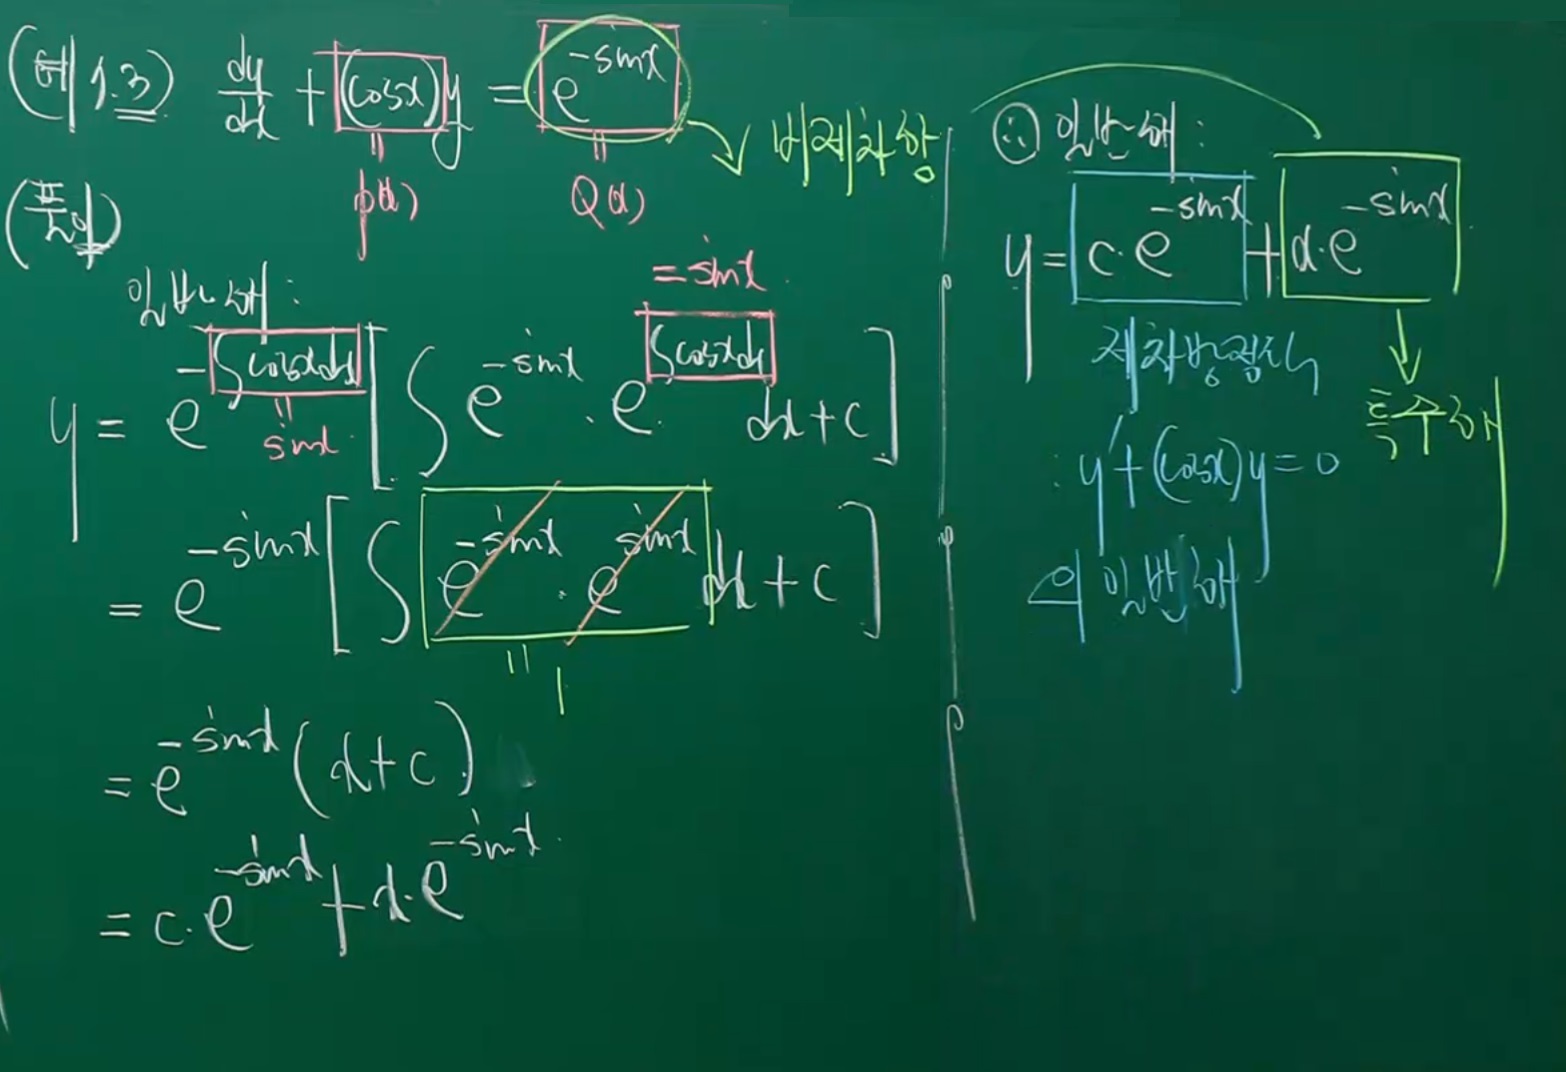 (예 1.3) dy/dx + (cosx)y = e^{-sinx} → 비제차항
" p(x) " Q(x)
(풀이)
일반해:
= sinx
y = e^{-∫cosxdx} [ ∫ e^{-sinx} · e^{∫cosxdx} dx + c ]
" sinx
= e^{-sinx} [ ∫ e^{-sinx} · e^{sinx} dx + c ]
" 1
= e^{-sinx} (x + c)
= c·e^{-sinx} + x·e^{-sinx}
∴ 일반해:
y = c·e^{-sinx} + x·e^{-sinx}
제차방정식
: y' + (cosx)y = 0
의 일반해
특수해